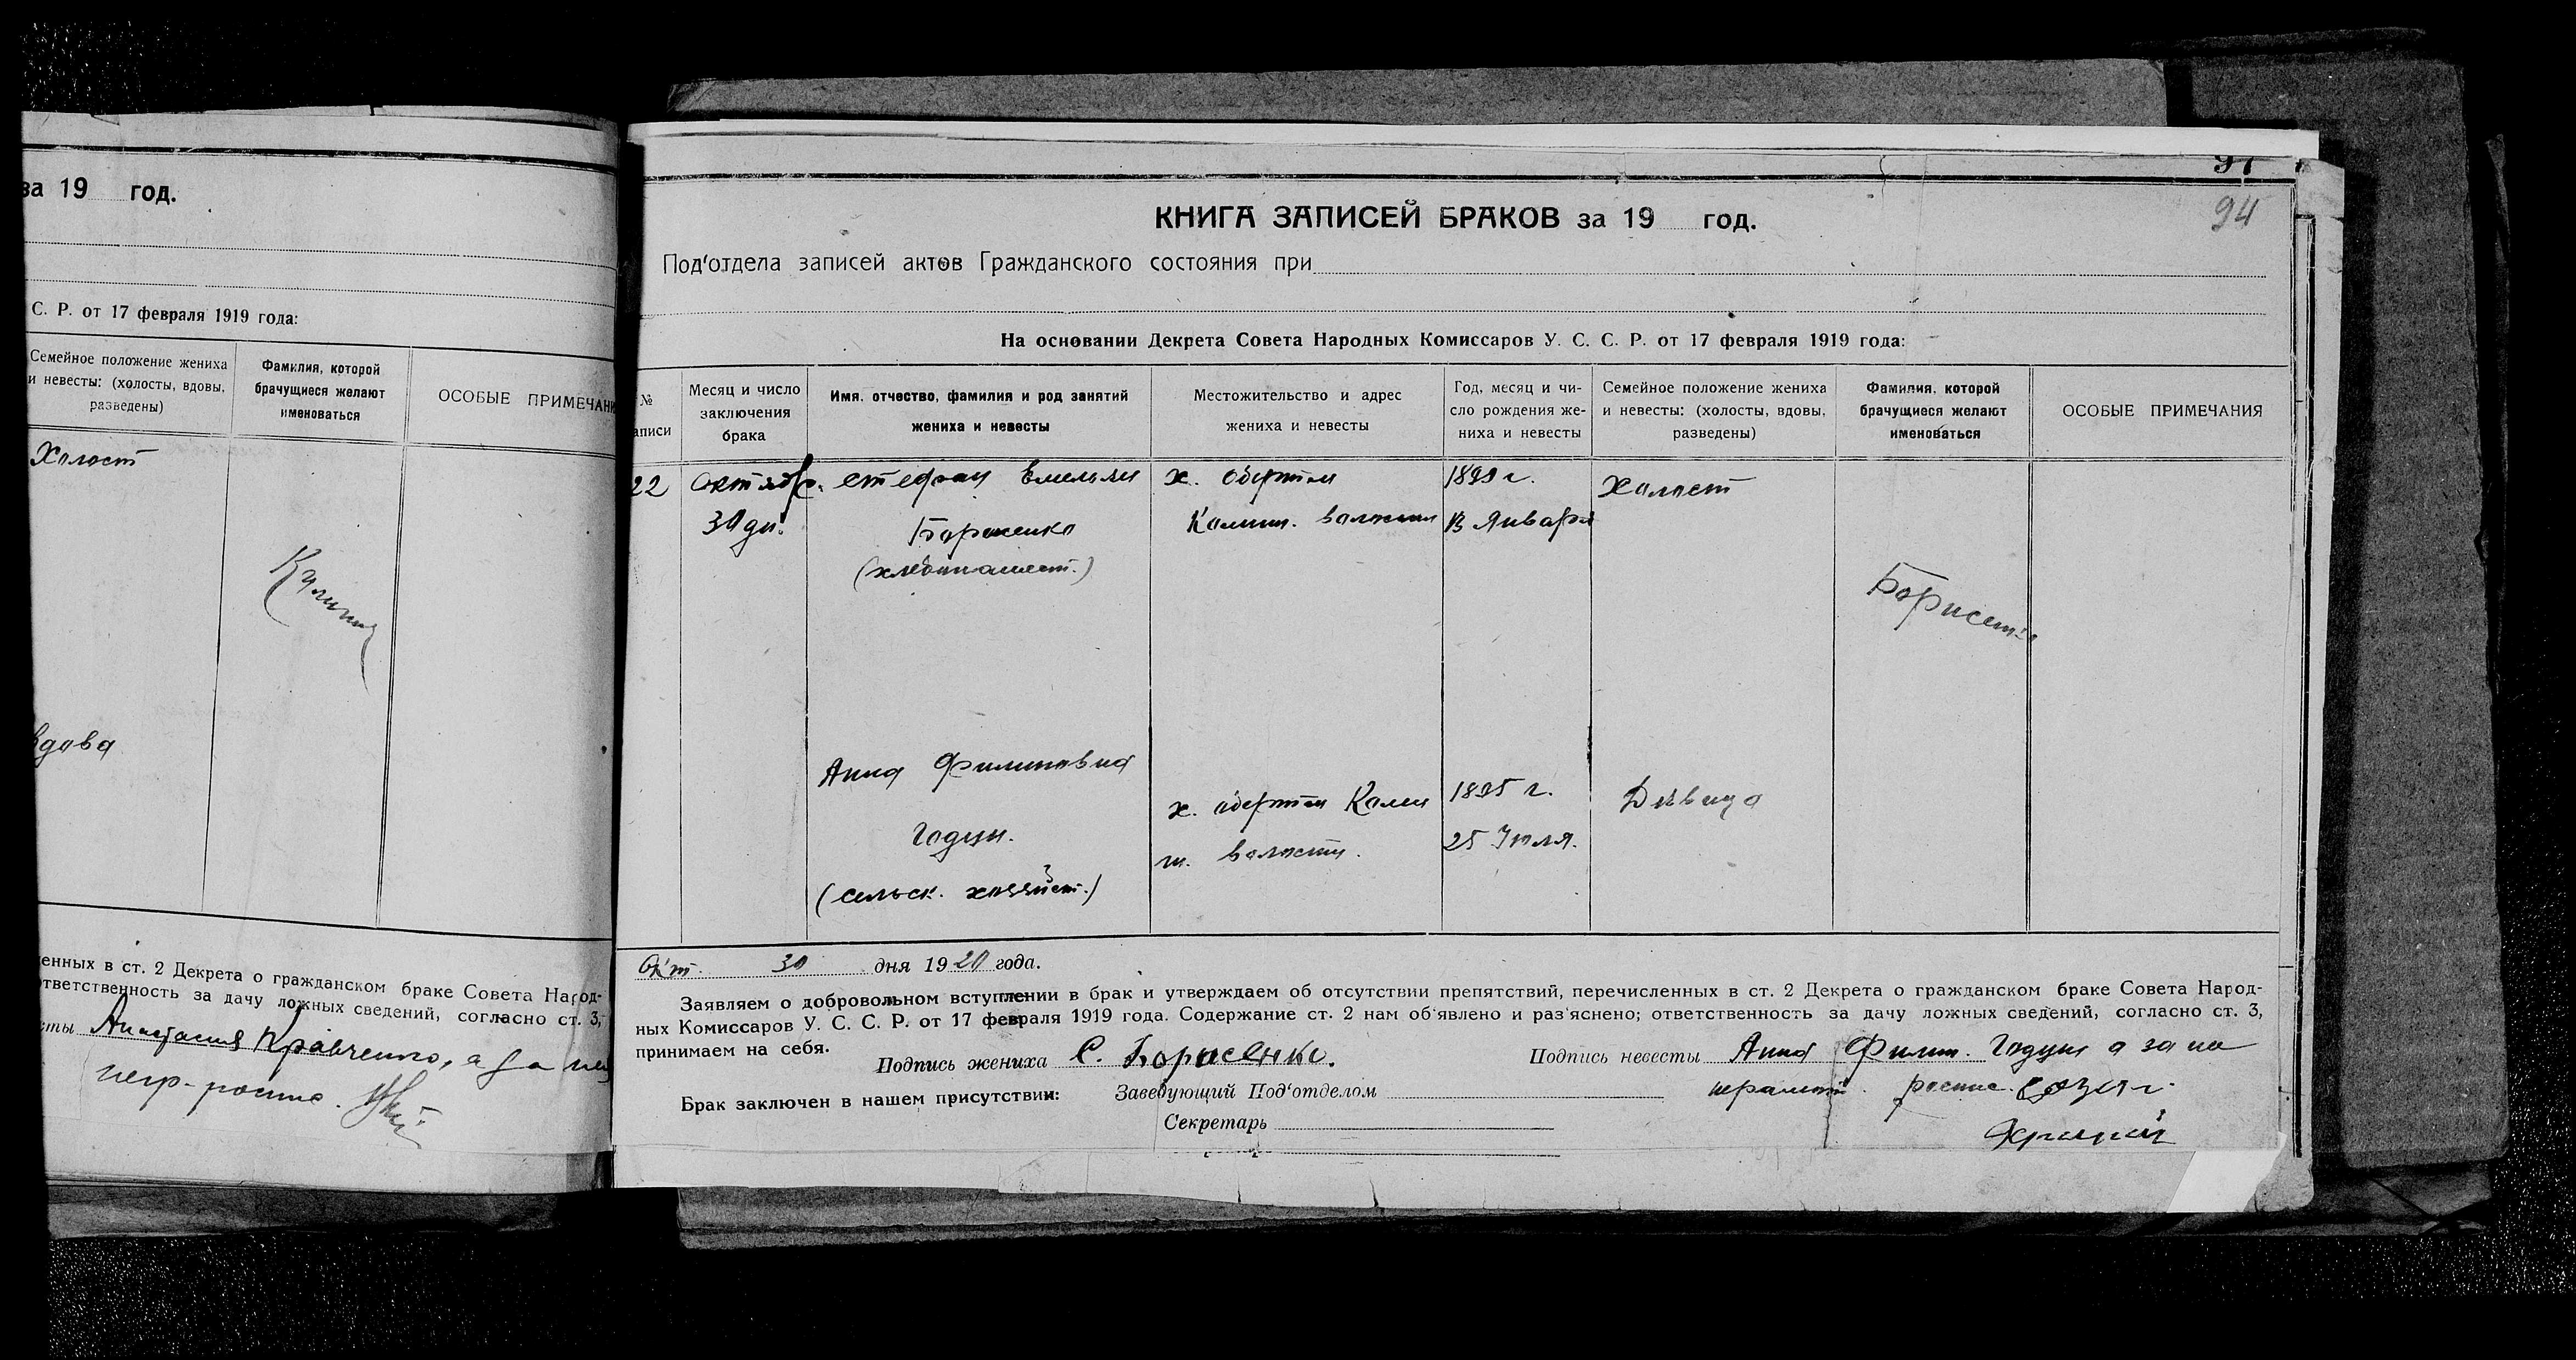 за 19 год.
С. Р. от 17 февраля 1919 года:
Семейное положение жениха
и невесты: (холосты, вдовы,
разведены)
Фамилия, которой
брачущиеся желают
именоваться
ОСОБЫЕ ПРИМЕЧАНИ
Холост
вдова
енных в ст. 2 Декрета о гражданском браке Совета Народ-
ответственность за дачу ложных сведений, согласно ст. 3,
сты Анастасия Кравченко, а за не
негр-роспис.
97
94
КНИГА ЗАПИСЕЙ БРАКОВ за 19 год.
Под'отдела записей актов Гражданского состояния при
На основании Декрета Совета Народных Комиссаров У. С. С. Р. от 17 февраля 1919 года:
№
аписи
Месяц и число
заключения
брака
Имя, отчество, фамилия и род занятий
жениха и невесты
Местожительство и адрес
жениха и невесты
Год, месяц и чи-
сло рождения же-
ниха и невесты
Семейное положение жениха
и невесты: (холосты, вдовы,
разведены)
Фамилия, которой
брачущиеся желают
именоваться
ОСОБЫЕ ПРИМЕЧАНИЯ
22
Октябр.
30 дн.
Стефан Емельян
Борисенко
(хлебопашест.)
х.
волости
января
Холост
Анна Филиповна
Годун.
(сельск. хозяйст.)
х.
волости.
1895 г.
25 Июля.
Девица
Окт. 30 дня 1920 года.
Заявляем о добровольном вступлении в брак и утверждаем об отсутствии препятствий, перечисленных в ст. 2 Декрета о гражданском браке Совета Народ-
ных Комиссаров У. С. С. Р. от 17 февраля 1919 года. Содержание ст. 2 нам об'явлено и раз'яснено; ответственность за дачу ложных сведений, согласно ст. 3,
принимаем на себя.
Подпись жениха С. Борисенко.
Подпись невесты Анна Филип. Годун а за не
роспис.
Брак заключен в нашем присутствии:
Заведующий Под'отделом
Секретарь